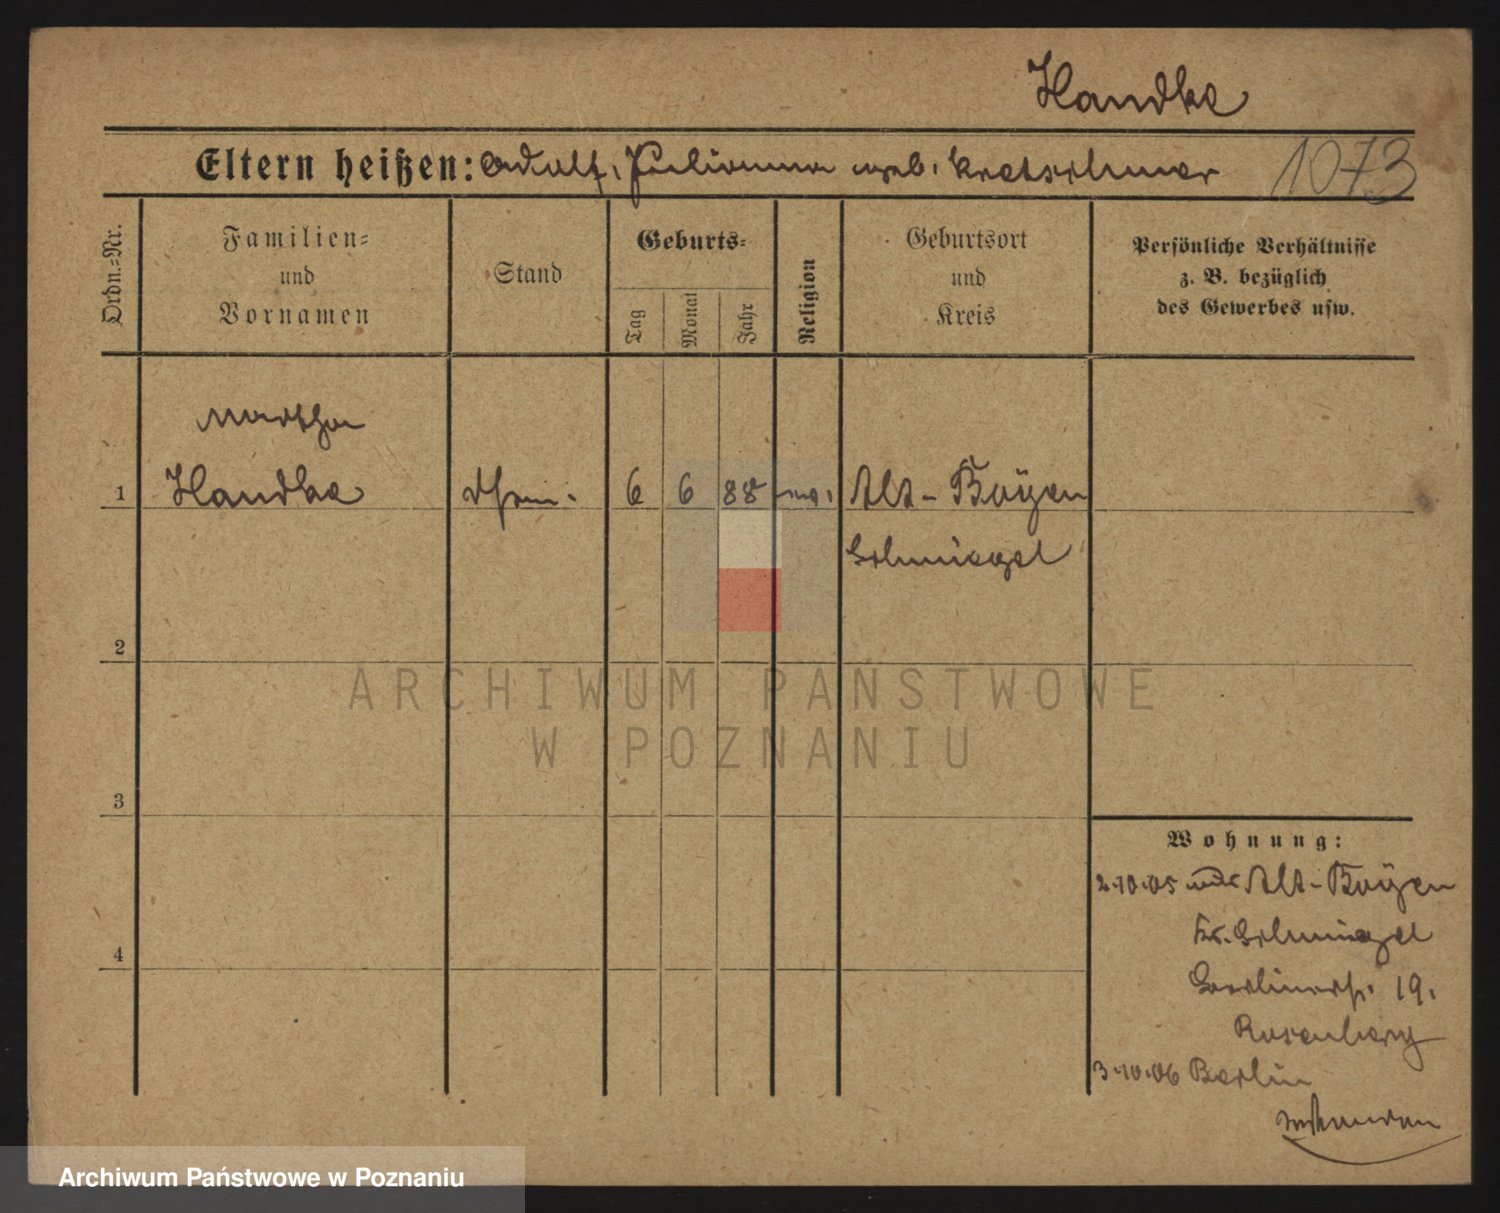 Handke
Eltern heißen: Adolf, Julianna geb. Kretschmer 1073
Ordn.=Nr.
Familien=
und
Vornamen
Stand
Geburts=
Tag
Monat
Jahr
Religion
Geburtsort
und
Kreis
Persönliche Verhältnisse
z. B. bezüglich
des Gewerbes usw.
Martha
1 Handke 6 6 88 ev. Alt-Boÿen
Schmiegel
2
ARCHIWUM PAŃSTWOWE
W POZNANIU
3
Wohnung:
2.10.05 Alt-Boÿen
Kr. Schmiegel
4
Berlinerst. 19.
Rosenberg
3.10.06 Berlin
Archiwum Państwowe w Poznaniu